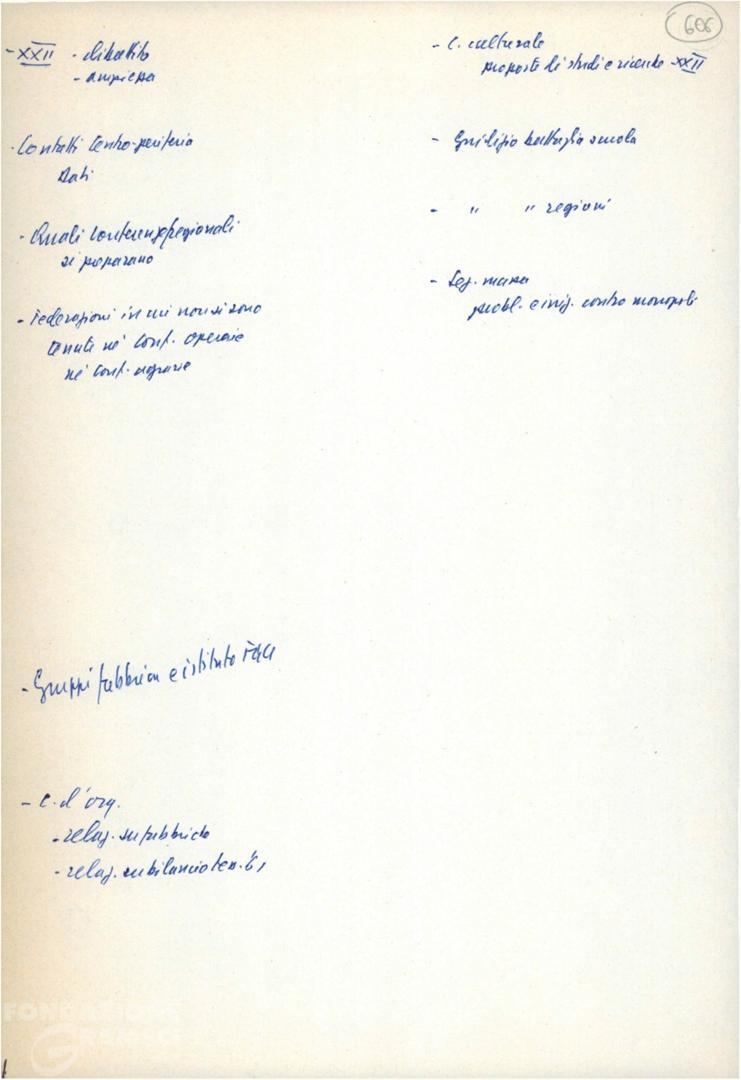 606
- XXII - dibattito
- ampiezza
- Contatti centro-periferia
Dati
- Quali conferenze regionali
si preparano
- Federazioni in cui non si sono
tenute né conf. operaie
né conf. agrarie
- Gruppi fabbrica e istituto
- C. d'org.
- relaz. su fabbriche
- relaz. su bilancio tess.
- C. culturale
proposte di studi e ricerche XXII
- Giudizio battaglia scuola
- " " regioni
- Sez. massa
probl. e iniz. contro monopoli
FONDAZIONE
GRAMSCI